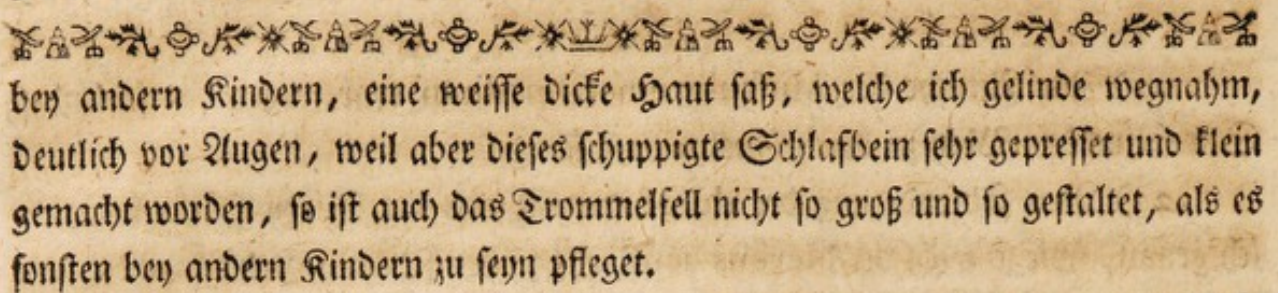 bey andern Kindern, eine weisse dicke Haut saß, welche ich gelinde wegnahm,
deutlich vor Augen, weil aber dieses schuppigte Schlafbein sehr gepresset und klein
gemacht worden, so ist auch das Trommelfell nicht so groß und so gestaltet, als es
sonsten bey andern Kindern zu seyn pfleget.